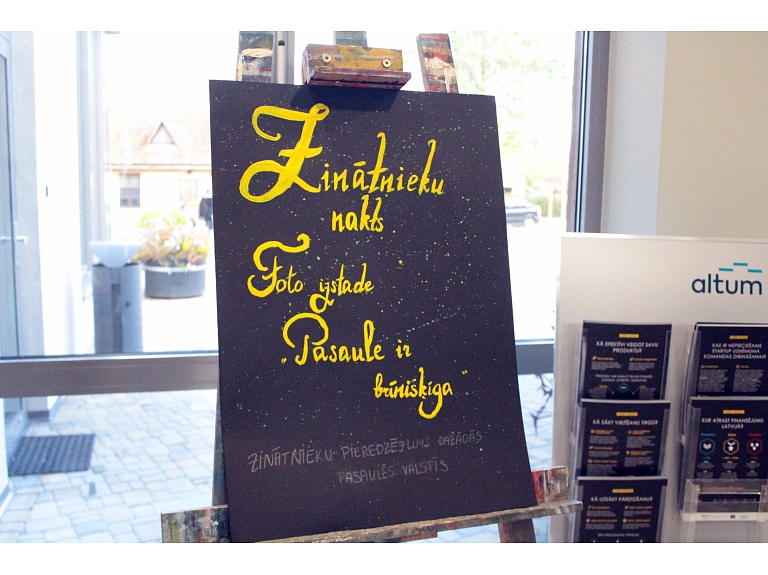 Zinātnieku
nakts
Foto izstāde
„Pasaule ir
brīnišķīga"
ZINĀTNIEKU PIEREDZĒJUMS DAŽĀDĀS
PASAULES VALSTĪS
altum
KĀ EFEKTĪVI VEIDOT SAVU
PRODUKTU?
KAS IR NEPIECIEŠAMS
STARTUP UZŅĒMUMA
KOMANDAS DIBINĀŠANAI?
KĀ SĀKT VIRZĪŠANU TIRGŪ?
KUR ATRAST FINANSĒJUMU
LATVIJĀ?
KĀ UZSĀKT PĀRDOŠANU?